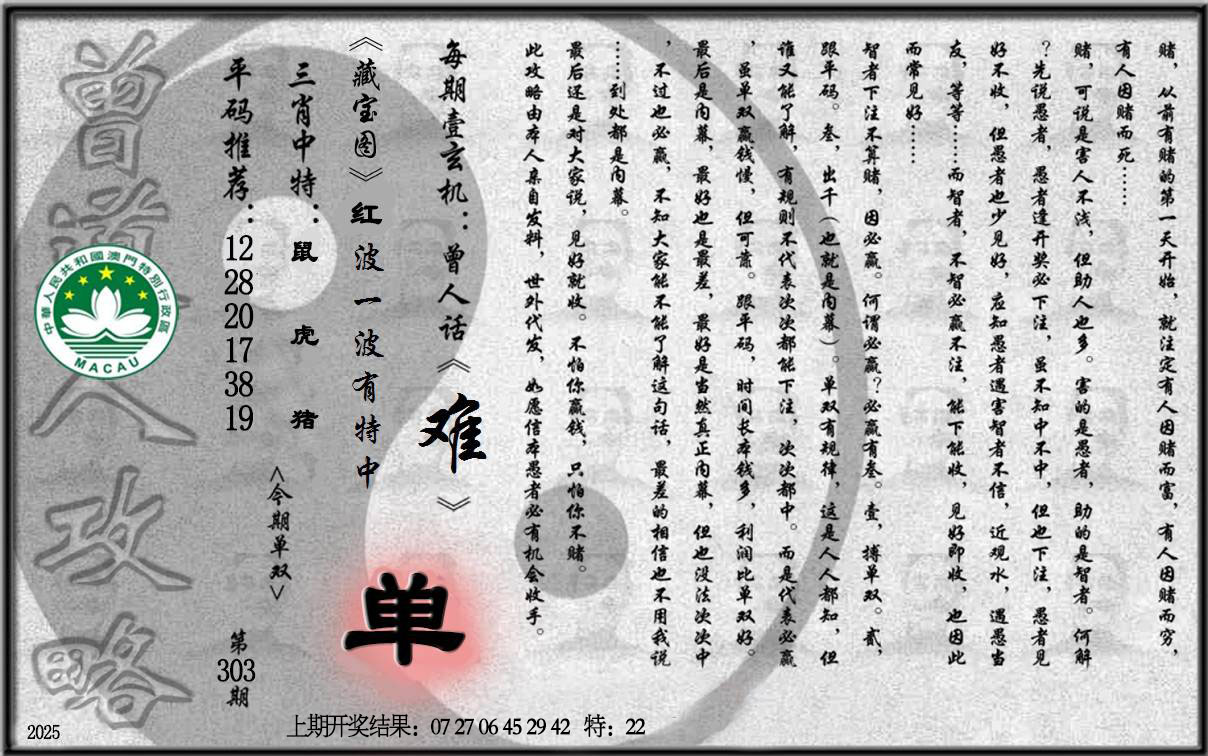 赌,从前有赌的第一天开始,就注定有人因赌而富,有人因赌而穷,
有人因赌而死……
赌,可说是害人不浅,但助人也多。害的是愚者,助的是智者。何解
?先说愚者,愚者逢开奖必下注,虽不知中不中,但也下注,愚者见
好不收,但愚者也少见好,应知愚者遇害智者不信,近观水,遇愚当
友,等等……而智者,不智必赢不注,能下能收,见好即收,也因此
而常见好……
智者下注不算赌,因必赢。何谓必赢?必赢有叁。壹,搏单双。贰,
跟平码。叁,出千(也就是内幕)。单双有规律,这是人人都知,但
谁又能了解,有规则不代表次次都能下注,次次都中。而是代表必赢
,虽单双赢钱慢,但可靠。跟平码,时间长本钱多,利润比单双好。
最后是内幕,最好也是最差,最好是当然真正内幕,但也没法次次中
,不过也必赢,不知大家能不能了解这句话,最差的相信也不用我说
……到处都是内幕。
最后还是对大家说,见好就收。不怕你赢钱,只怕你不赌。
此攻略由本人亲自发料,世外代发,如愿信本愚者必有机会收手。
每期壹玄机:曾人话《难》
《藏宝图》红波一波有特中
单
三肖中特:鼠 虎 猪
<今期单双>
平码推荐:12 28 20 17 38 19
第303期
曾道人攻略
中華人民共和國澳門特別行政區
MACAU
上期开奖结果:07 27 06 45 29 42 特:22
2025